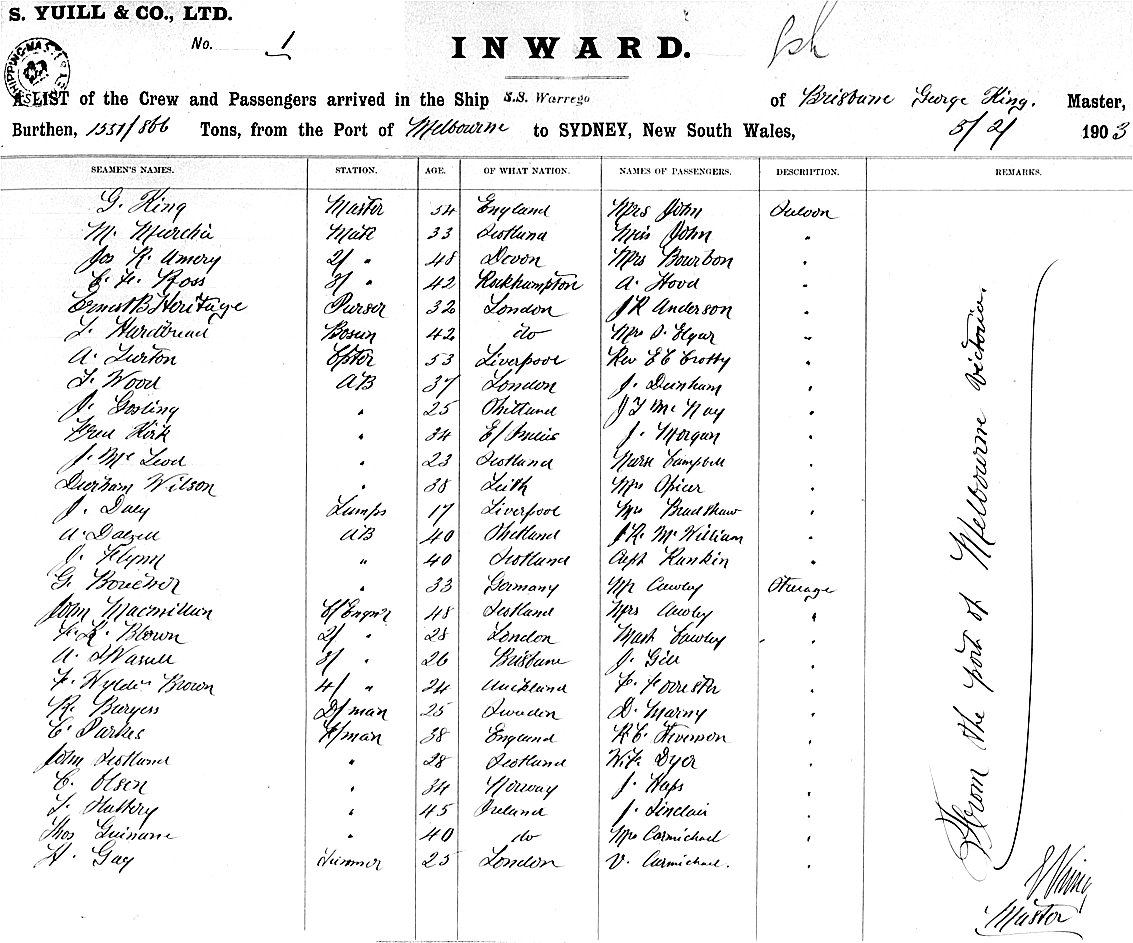 S. YUILL & CO., LTD.
No. 1
INWARD.
A LIST of the Crew and Passengers arrived in the Ship S.S. Warrego of Brisbane George King. Master,
Burthen, 1551/866 Tons, from the Port of Melbourne to SYDNEY, New South Wales, 5/2/ 1903
SEAMEN'S NAMES. STATION. AGE. OF WHAT NATION. NAMES OF PASSENGERS. DESCRIPTION. REMARKS.
G. King Master 54 England Mrs John Saloon
M. Murchie Mate 33 Scotland Miss John "
Jos R. Amery 2/ " 48 Devon Mrs Bourbon "
Ross 3/ " 42 Rockhampton A. Hood "
Ernest B Heritage Purser 32 London J R Anderson "
Hardbread Bosun 42 do Mrs Elgar "
A. Turton 53 Liverpool Rev E C Crotty "
T. Wood AB 37 London J. Dunham "
J. Gosling " 25 Shetland J T McNay "
Fred Kirk " 34 E/Indies J. Morgan "
J. McLeod " 23 Scotland Nurse Campbell "
Durham Wilson " 38 Leith Mrs Spicer "
J. Daly Lamps 17 Liverpool Mrs Bradshaw "
A. Dalzell AB 40 Shetland J. R. McWilliam "
J. Flynn " 40 Scotland Capt Rankin "
G. Boucher " 33 Germany Mr Cawley Steerage
John Macmillan C/Engn'r 48 Scotland Mrs Cawley "
Brown 2/ " 28 London Mast Cawley "
A. 3/ " 26 Brisbane J. Gill "
F. Wylde Brown 4/ " 24 Auckland Forrester "
R. Burgess D/man 25 Sweden D. Marny "
C. Parkes F/man 38 England R. C. Stevenson "
John Scotland " 28 Scotland Dyer "
C. Olsen " 34 Norway J. Haps "
T. Slattery " 45 Ireland J. Sinclair "
Thos Guinane " 40 do Mrs Carmichael "
H. Gay Trimmer 25 London V. Carmichael. "
From the port of Melbourne Victoria.
G King
Master